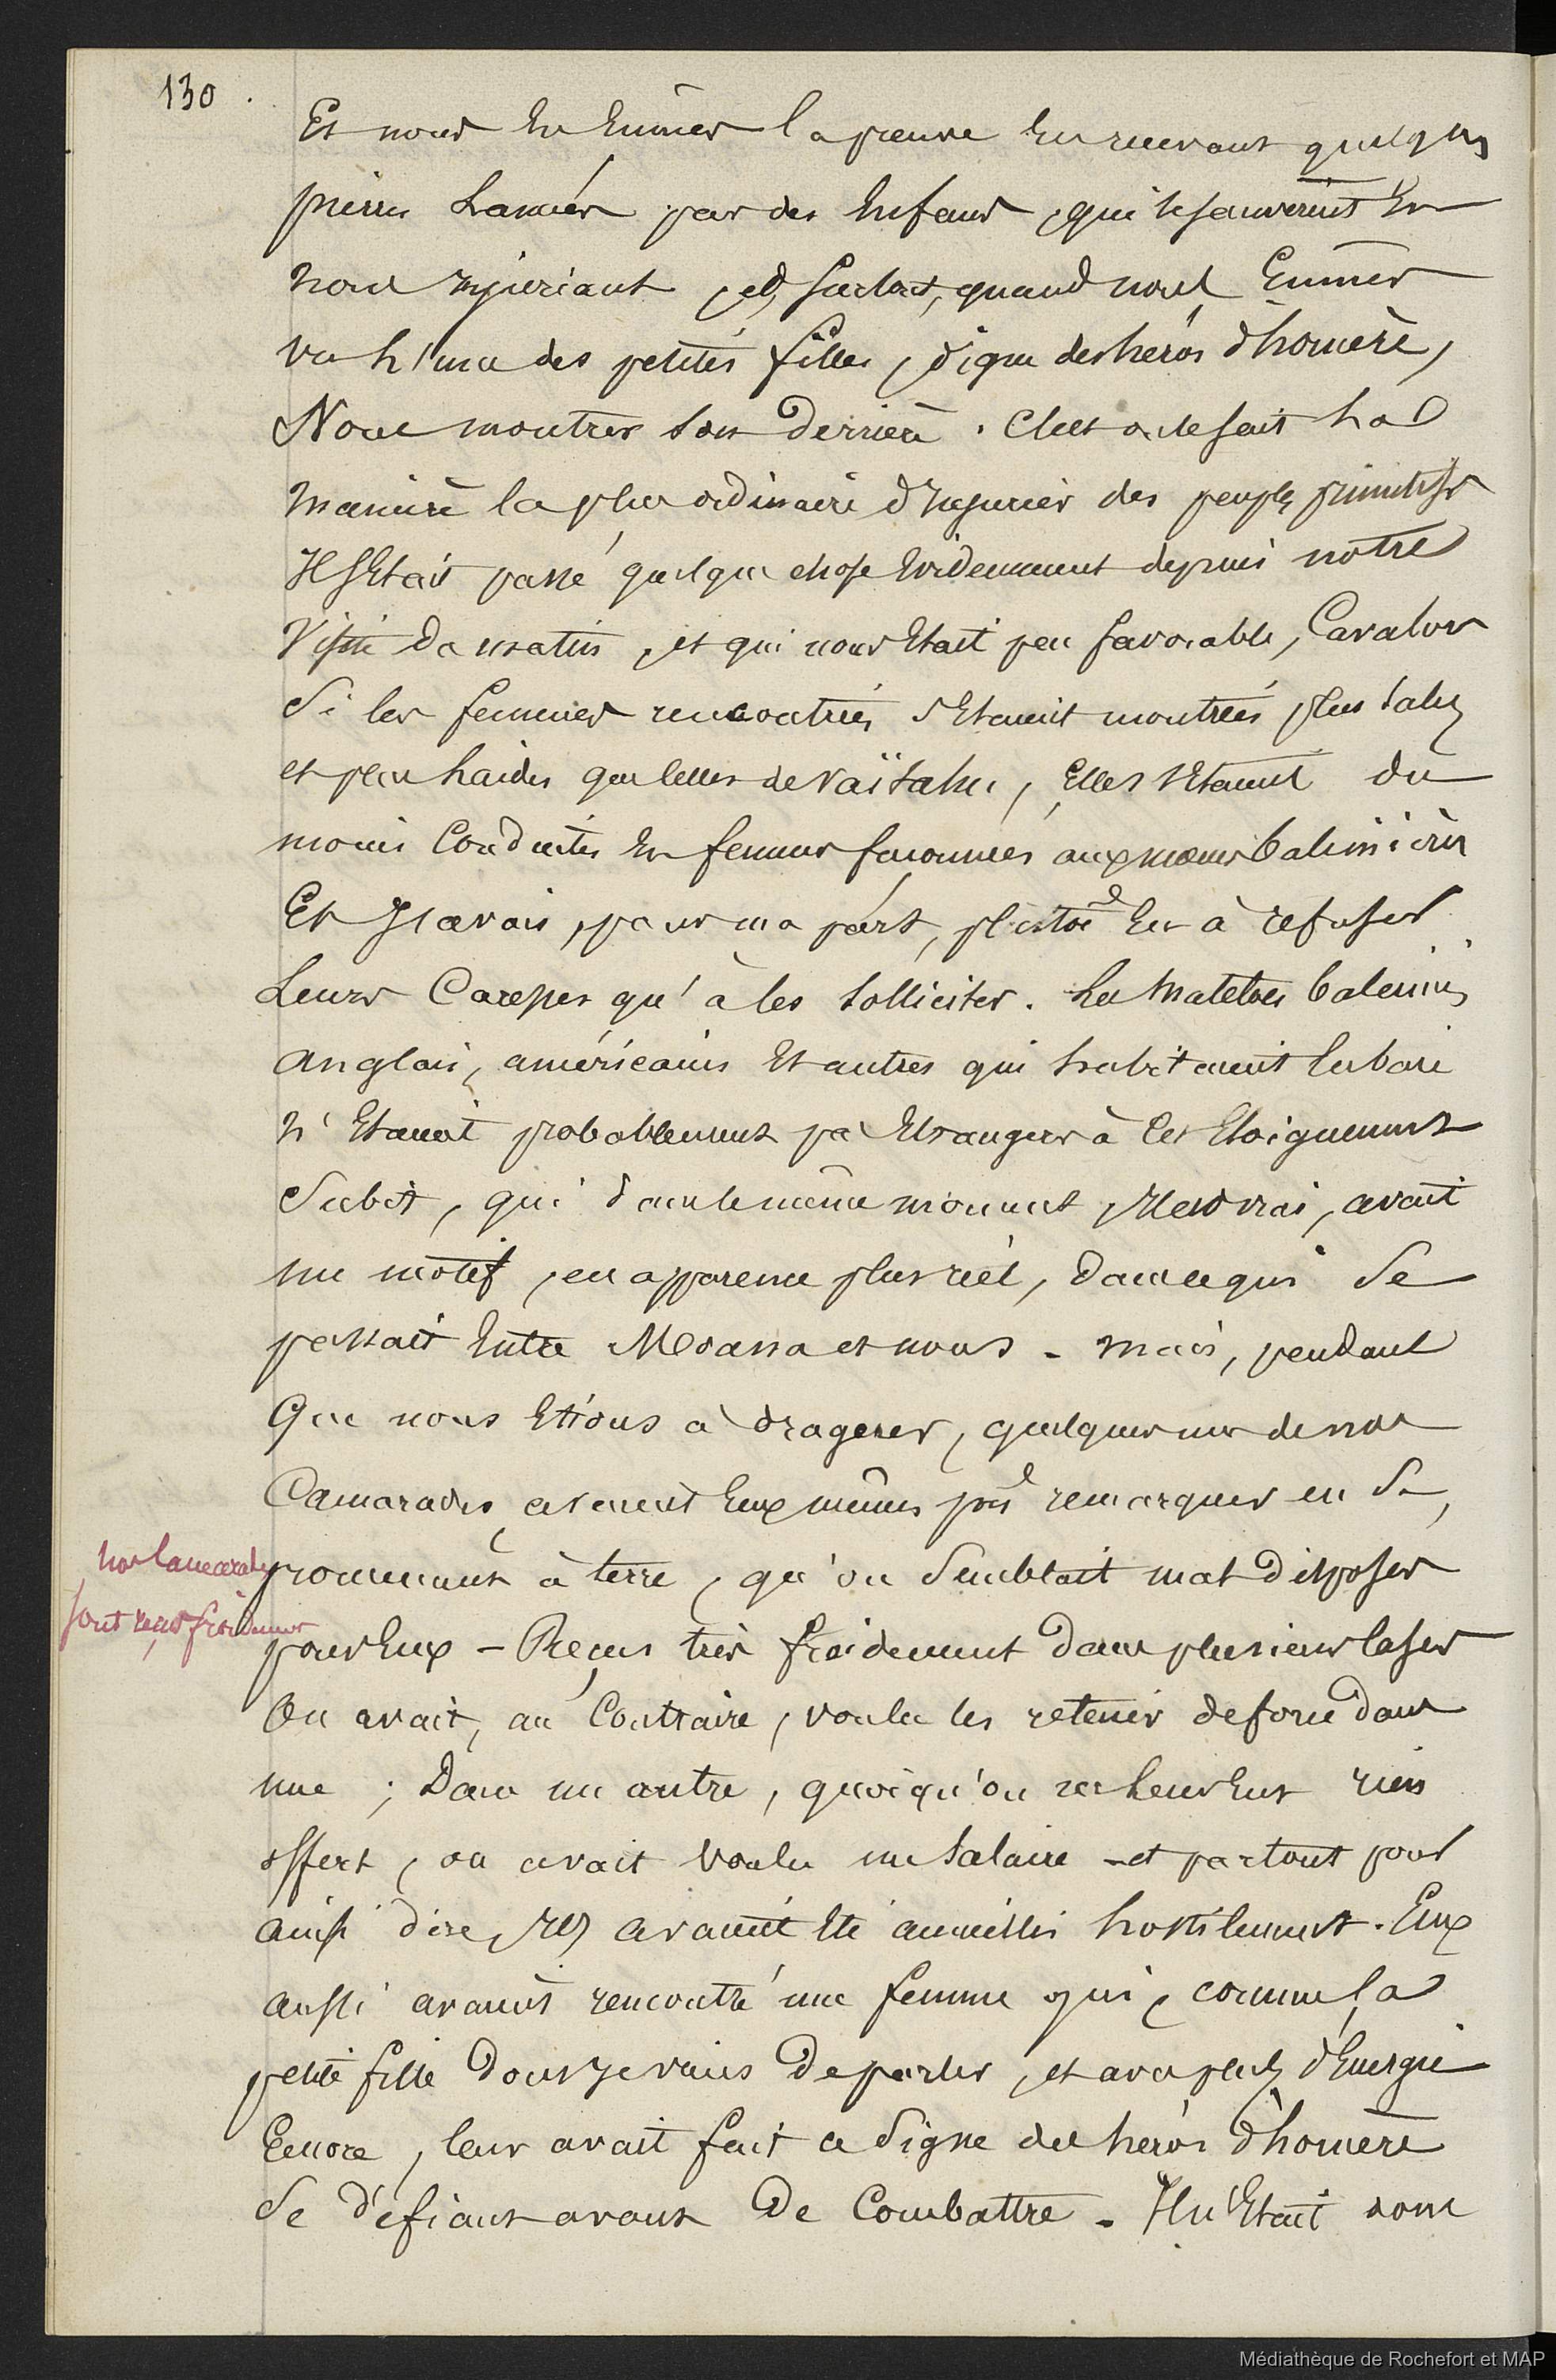 130
Et nous en eûmes la preuve en recevant quelques
pierres lancées par des enfans, qui se sauverent en
nous injuriant, et, surtout, quand nous eûmes
vu l'une des petites filles, digne des héros d'homère,
Nous montrer son derrière. C'est au reste la
manière la plus ordinaire d'injurier des peuples primitifs
Il s'etait passé quelque chose evidemment depuis notre
Visite du matin, et qui nous etait peu favorable, Car alors
Si les femmes rencontrées s'etaient montrées plus sales
et plus laides que celles de Vaïtahu, Elles s'etaient du
moins Conduites en femmes façonnées aux mœurs baleinières
Et J'avais, pour ma part, plutôt eu à refuser
Leurs Caresses qu'à les solliciter. Les matelots baleiniers
anglais, américains et autres qui habitaient la baie
n'etaient probablement pas etrangers à cet eloignement
Subit, qui dans le même moment, il est vrai, avait
un motif, en apparence plus réel, dans ce qui se
passait entre Moana et nous - mais, pendant
Que nous etions à draguer, quelques uns de nos
Camarades avaient eux mêmes pû remarquer en se
promenant à terre, qu'on semblait mal disposer
pour eux - Reçus très froidement dans plusieurs cases
On avait, au Contraire, voulu les retenir de force dans
une ; Dans une autre, quoiqu'on ne leur eut rien
offert, on avait voulu un salaire - et partout pour
ainsi dire, ils avaient eté accueillis hostilement. Eux
aussi avaient rencontré une femme qui, comme la
petite fille dont je viens de parler, et avec plus d'energie
Encore, leur avait fait ce signe des héros d'homère
Se défiant avant de Combattre. Il n'etait donc
nos camarades
sont reçus froidement
Médiathèque de Rochefort et MAP